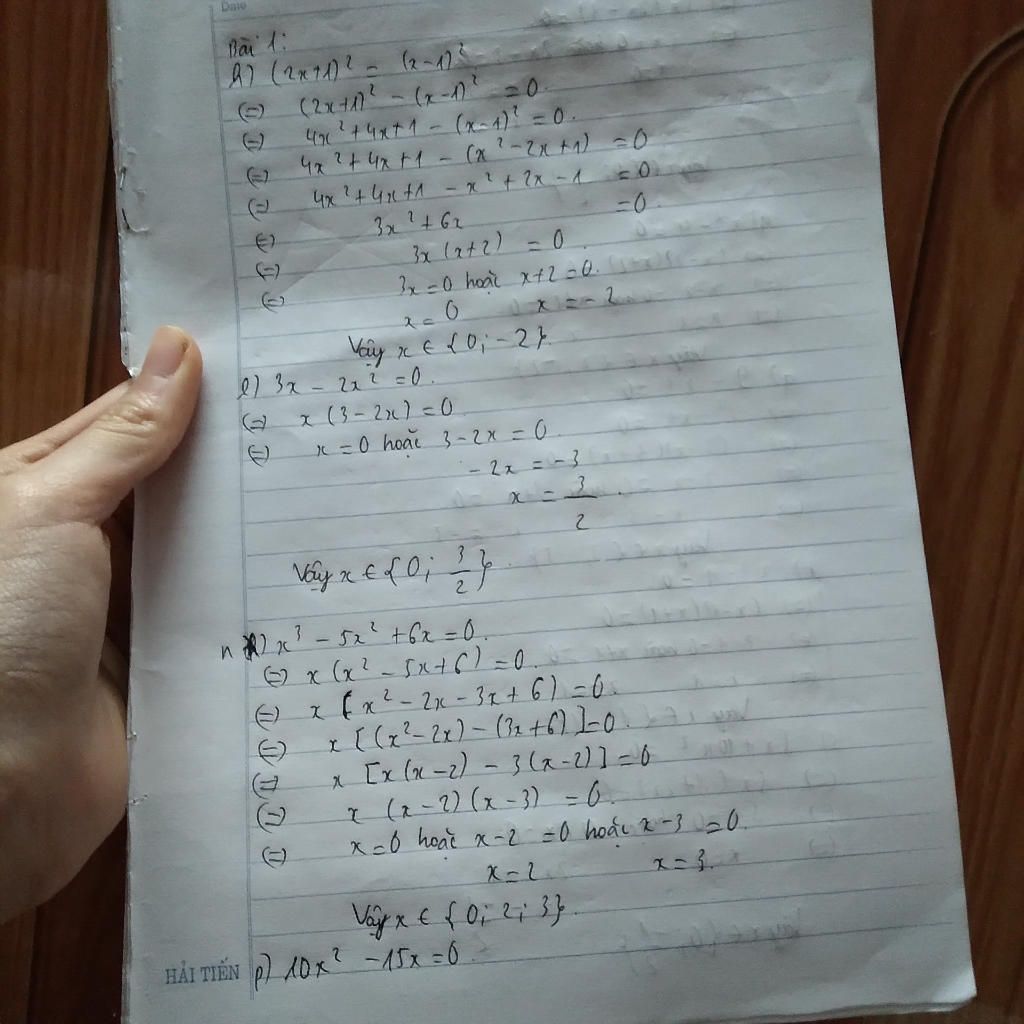 Date
Bài 1:
h) (2x+1)² = (x-1)²
(=) (2x+1)² - (x-1)² = 0.
(=) 4x² + 4x + 1 - (x-1)² = 0.
(=) 4x² + 4x + 1 - (x² - 2x + 1) = 0
(=) 4x² + 4x + 1 - x² + 2x - 1 = 0
(=) 3x² + 6x = 0
(=) 3x (x+2) = 0
(=) 3x = 0 hoặc x+2 = 0.
x = 0 x = -2
Vậy x ∈ {0; -2}.
l) 3x - 2x² = 0.
(=) x (3 - 2x) = 0
(=) x = 0 hoặc 3 - 2x = 0
-2x = -3
x = 3/2.
Vậy x ∈ {0; 3/2}.
n) x³ - 5x² + 6x = 0.
(=) x (x² - 5x + 6) = 0.
(=) x (x² - 2x - 3x + 6) = 0
(=) x [(x² - 2x) - (3x + 6)] = 0
(=) x [x(x-2) - 3(x-2)] = 0
(=) x (x-2)(x-3) = 0.
(=) x = 0 hoặc x-2 = 0 hoặc x-3 = 0.
x = 2 x = 3.
Vậy x ∈ {0; 2; 3}.
HẢI TIẾN p) 10x² - 15x = 0.